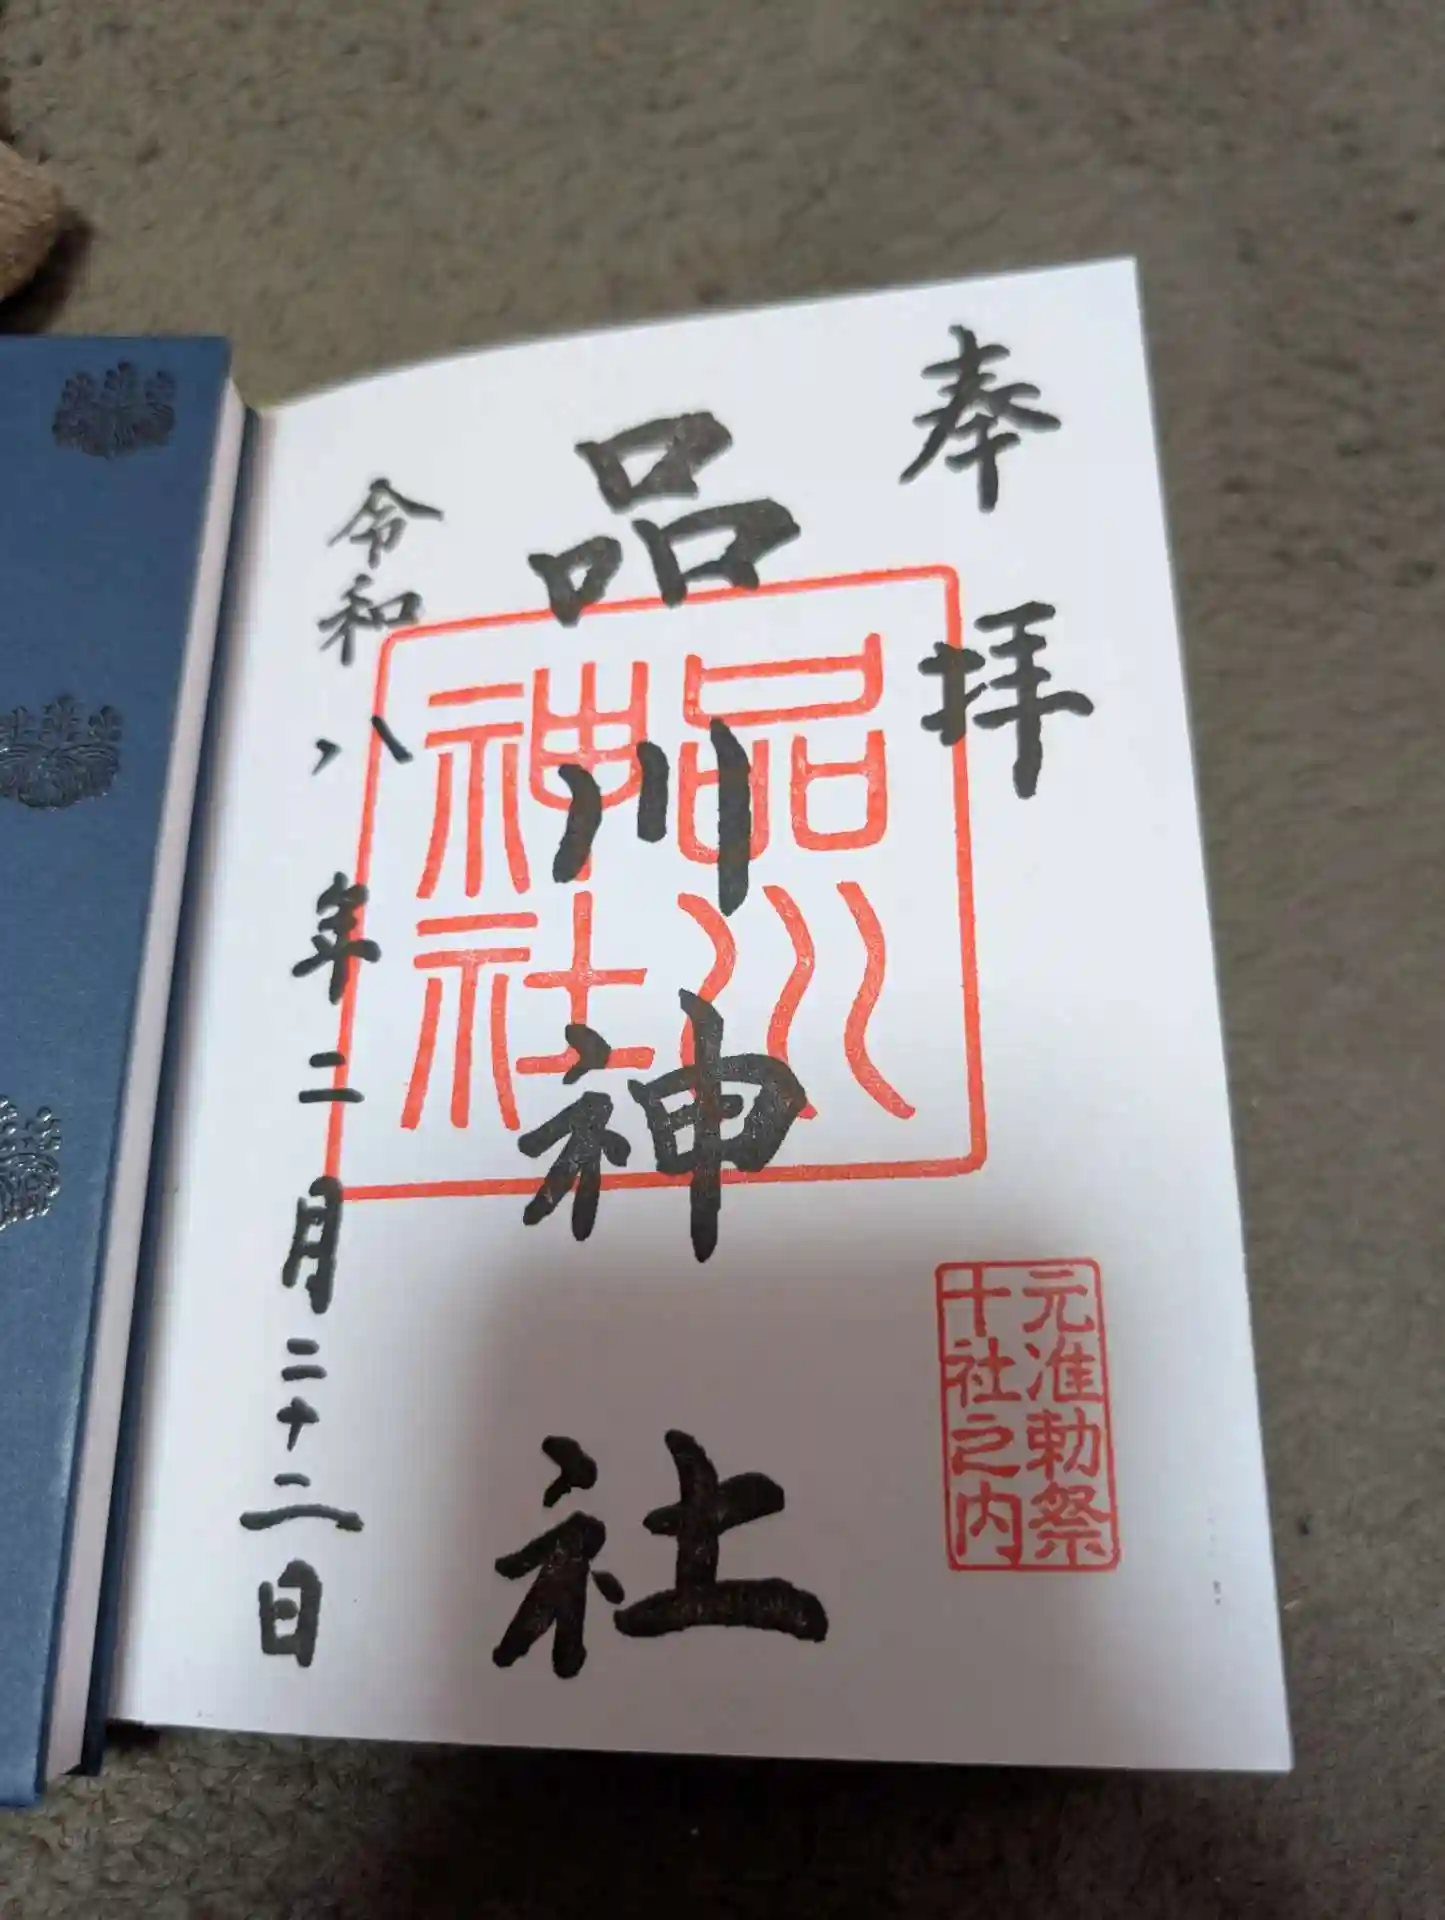 奉拝
元准勅祭
十社之内
品川神社
品川
神社
令和八年二月二十二日